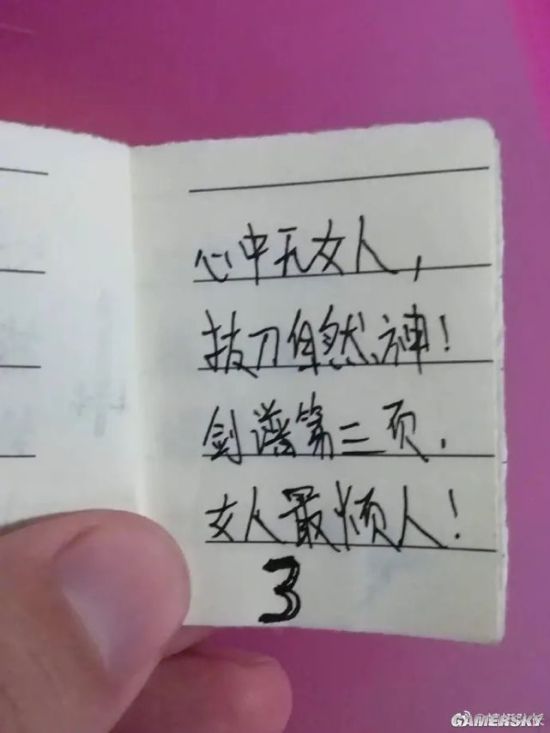 心中无女人,
拔刀自然神!
剑谱第三页.
女人最烦人!
3
GAMERSKY